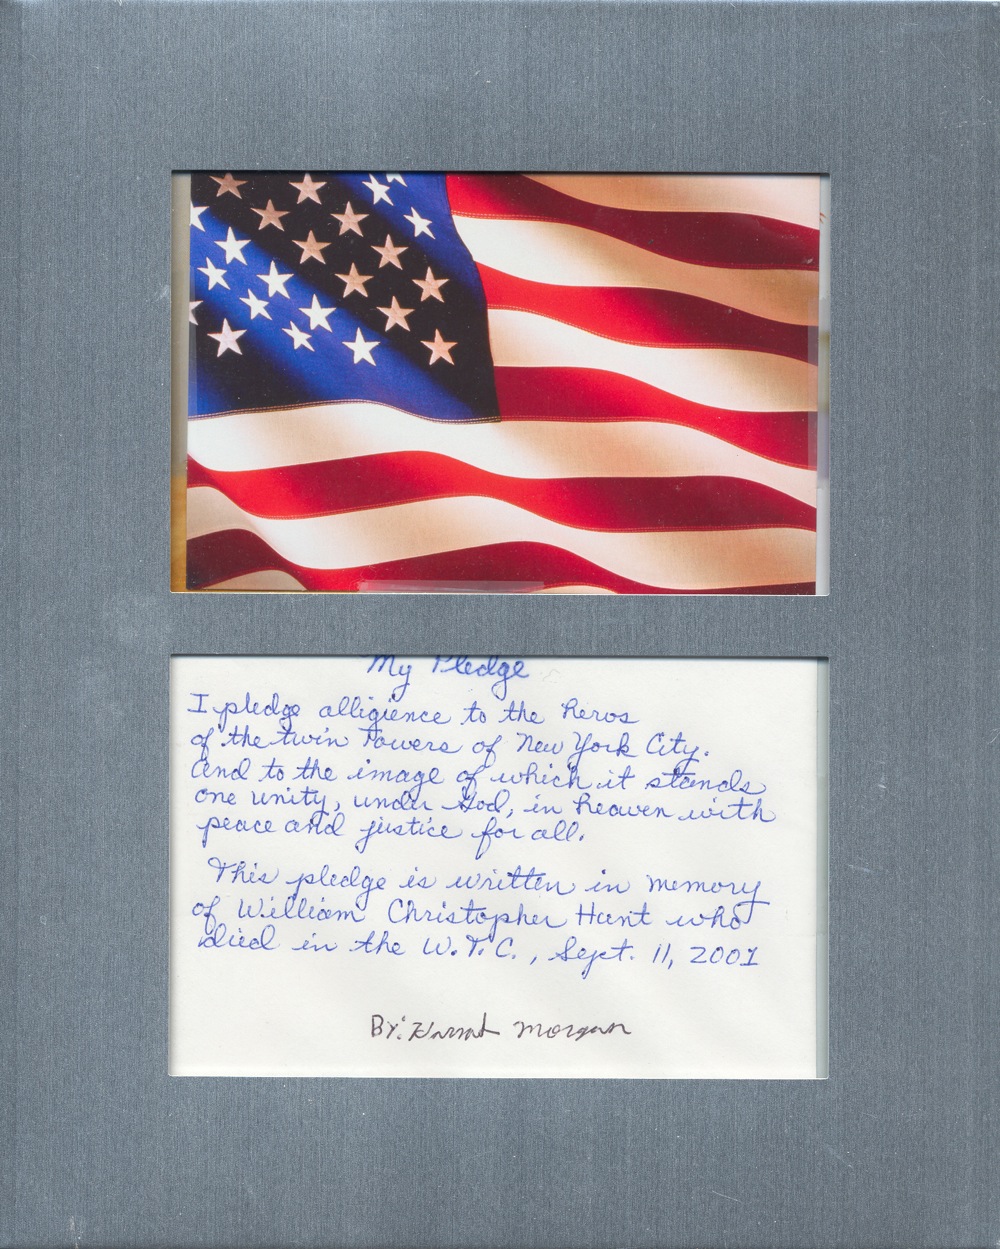 My Pledge
I pledge alligience to the heros
of the twin Towers of New York City.
And to the image of which it stands
one unity, under God, in heaven with
peace and justice for all.
This pledge is written in memory
of William Christopher Hunt who
died in the W.T.C., Sept. 11, 2001
By: Morgan